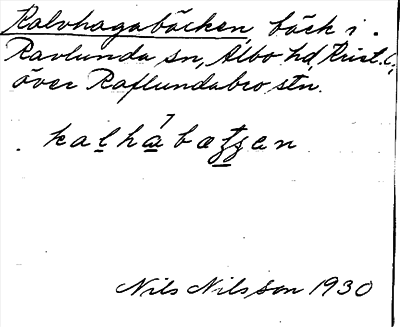 Kalvhagabäcken, bäck i
Ravlunda sn, Albo hd, Krist. l;
över Raflundabro stn.
kalhabætsen
Nils Nilsson 1930